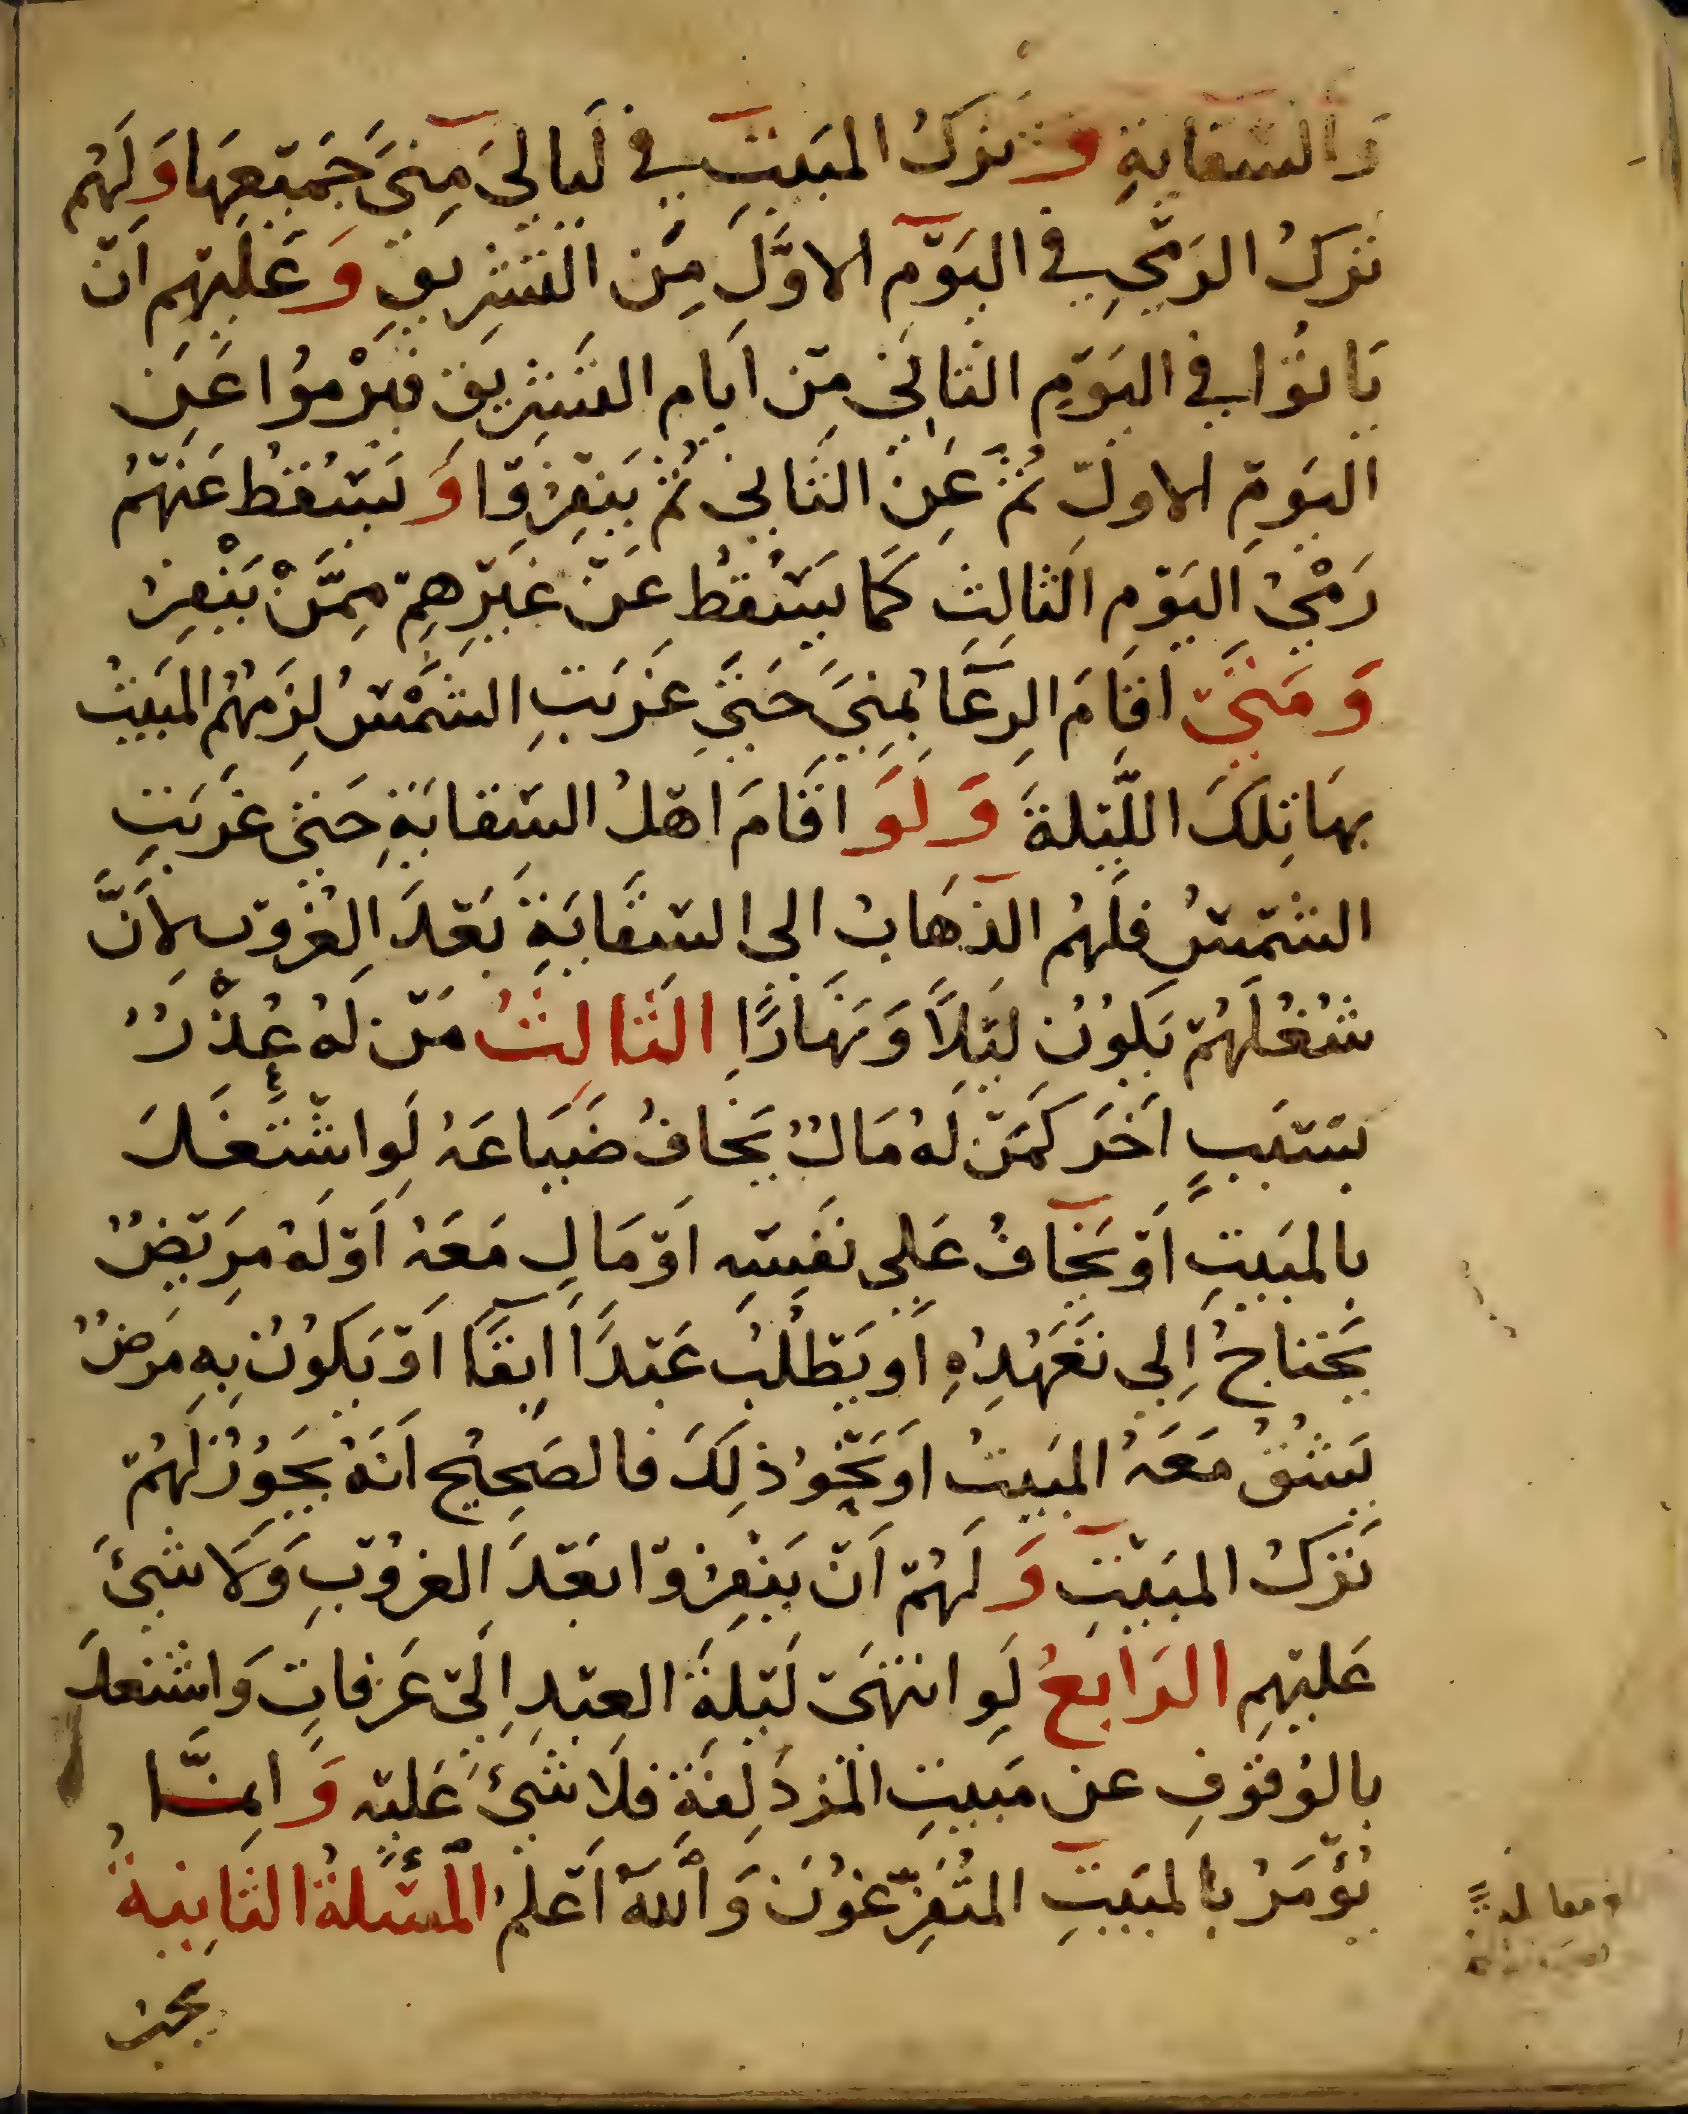 وَالسِّقَايَةِ وَتَرْكُ المَبِيْتِ في لَيالىَ مِنىً جَمِيْعِهَا وَلَهُم
تَركُ الرَمْىِ في اليَوْمِ الاوَّلِ مِن التَشرِيقِ وَعَلَيْهِم انْ
يَاتُوا في اليَوْمِ الثانِى مِنْ ايامِ التَشرِيق فيَرْمُوا عَنِ
اليَومِ الاولِ ثُمَّ عَنِ الثَانِى ثُمَّ يَنْفِرُوْا وَيَسْقُطُ عَنْهُمْ
رَمْىُ اليَوْمِ الثالِثِ كَمَا يَسْقُطُ عَنْ غَيْرِهِمْ مِمَّنْ يَنْفِرُ
وَمَتَىْ اقَامَ الرِعَا بمِنىً حَتَى غَرَبَتِ الشَمْسُ لزِمَهُم المَبيتُ
بهَا تِلكَ اللَّيْلةَ وَلَوْ اقَامَ اهْلُ السِّقَايَةِ حَتىَ غَرَبَتِ
الشَمْسُ فلَهُم الذهَابُ الى السِّقَايَةِ بَعْدَ الغُروْب لأَنَّ
شُغْلَهُمْ يَكوُنُ لَيْلاً وَنهَاراً الثالِثُ مَنْ لَهُ عُذْرٌ
بسَبَبٍ آخَر كَمَنْ لهُ مَالٌ يَخافُ ضَيَاعَهُ لَو اشْتَغَلَ
بالمَبِيتِ اوْ يَخَافُ عَلى نفْسِه اوْ مَالٍ مَعَهُ اَوْ لهُ مرِيْضٌ
يَحتاجُ اِلى تَعَهُدِهِ اَو يَطْلُبُ عَبْداً ابِقاً اَوْ يَكوُنُ بِهِ مَرضٌ
يَشُقُّ مَعَهُ المَبِيتُ اوْ نَحْوُ ذلِكَ فالصَحِيْح اَنَهُ يَجوُزُ لَهُمْ
تَرْكُ المَبيْتِ وَلَهُمْ اَنْ يَنْفِرُوْا بَعْدَ الغرُوْبِ وَلَا شَىْءَ
عَليْهِم الرَابعُ لَوِ انْتهَىَ لَيْلةَ العِيْدِ اِلَىْ عَرفاتِ وَاشتغلَ
بالوُقوْفِ عن مَبيتِ المُزدَلِفةِ فلَا شَىْءَ عَليْه وَانمَّا
يُؤْمَرُ بالمَبِيْتِ المُتَفَرِّغوُنَ وَاللّهُ اَعْلمُ المَسْئَلةُ الثانِيةُ
يجبُ